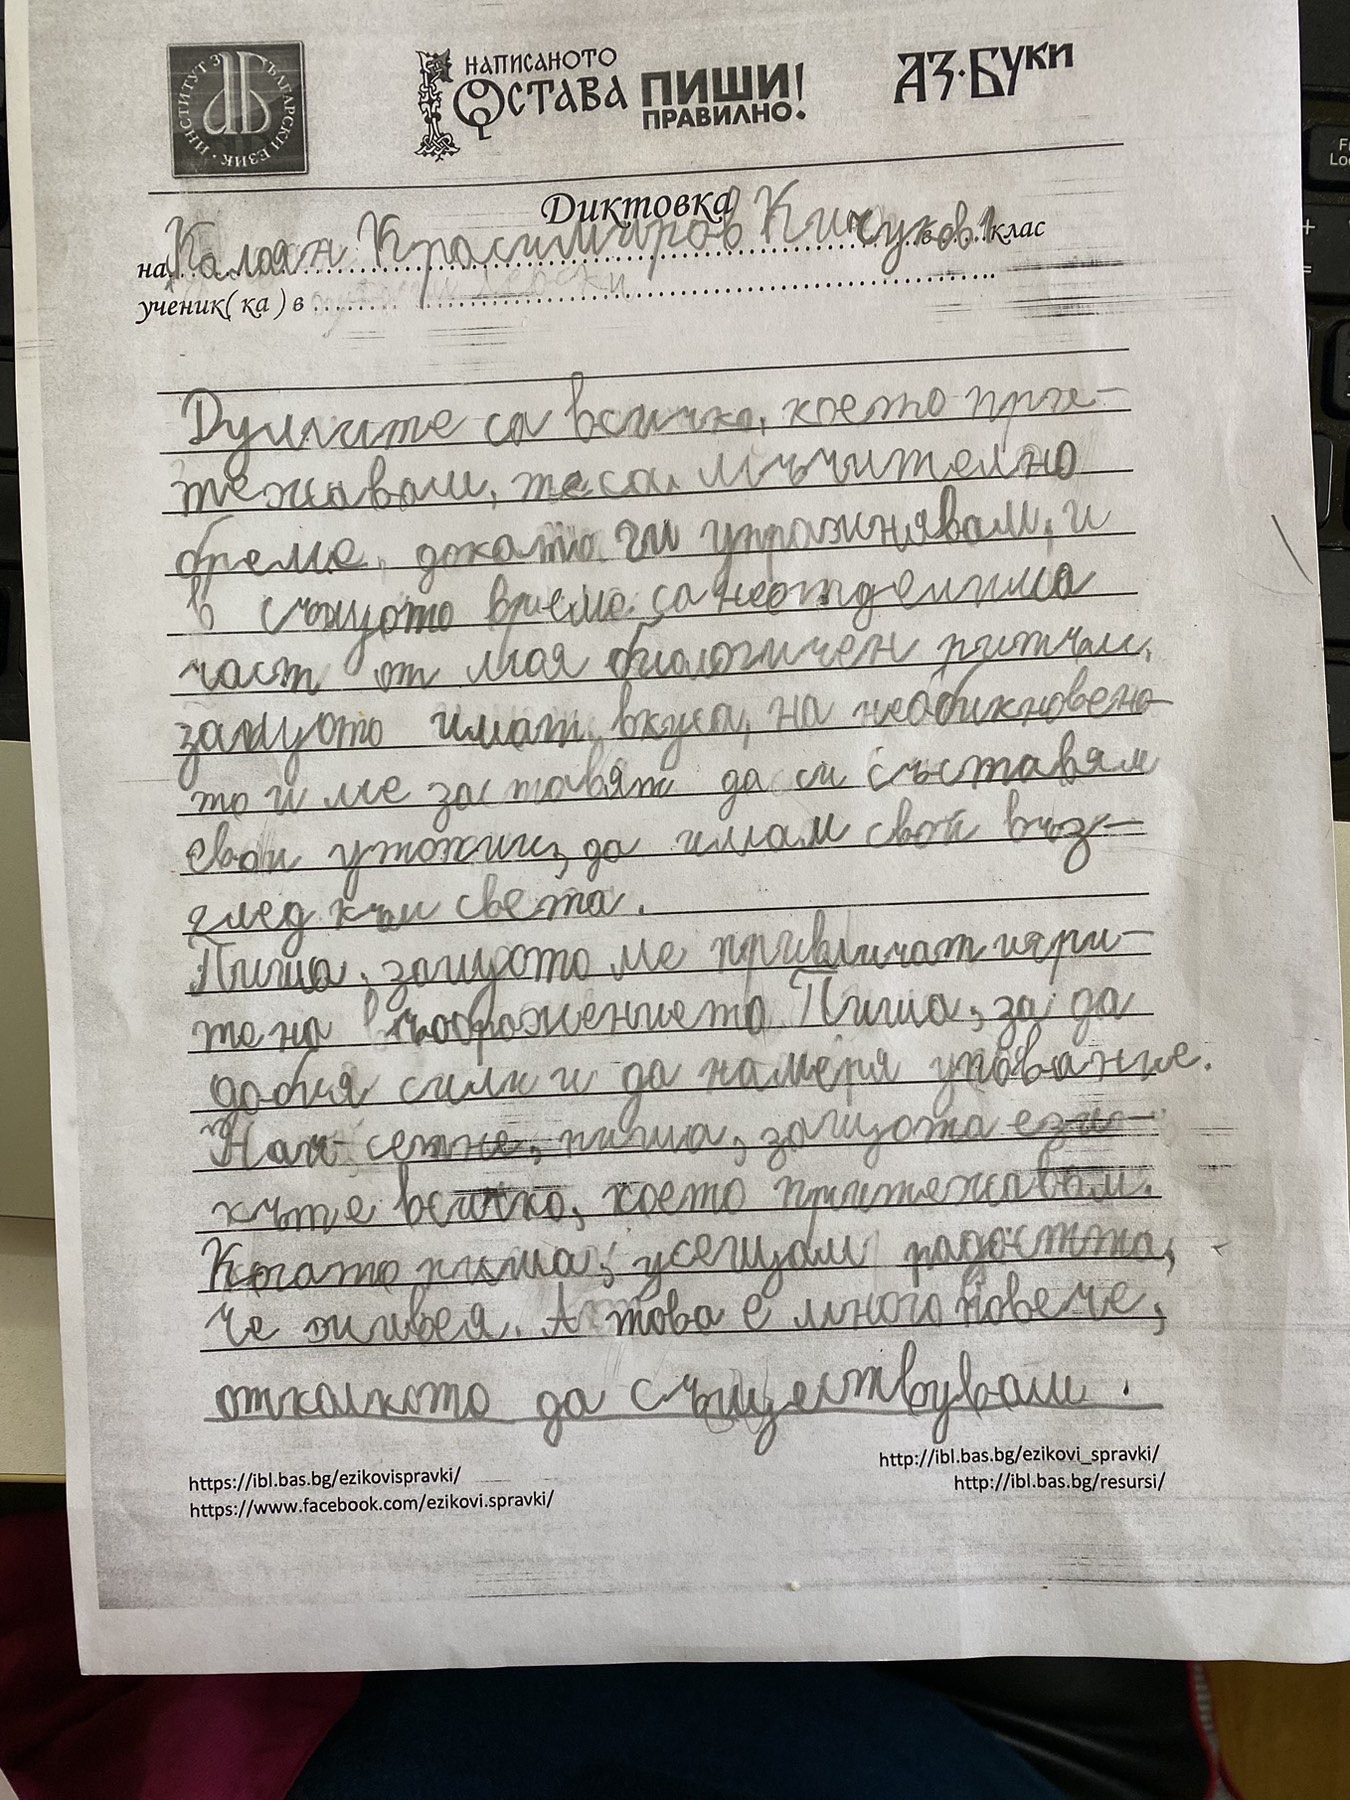 ИНСТИТУТ ЗА БЪЛГАРСКИ ЕЗИК
НАПИСАНОТО
ОСТАВА ПИШИ
ПРАВИЛНО!
АЗ·БУКИ
Диктовка
на Калоян Красимиров клас
ученик( ка ) в
Думите са всичко, което при-
тежавам, те са мъчително
бреме, докато ги упражнявам, и
в същото време са неотделима
част от моя биологичен ритъм,
защото имат вкуса, на необикновено-
то и ме заставят да си съставям
свои утопии, да имам свой въз-
глед към света.
Пиша, защото ме привличат игри-
те на въображението. Пиша, за да
добия сили и да намеря упование.
Най-сетне, пиша, защото ези-
кът е всичко, което притежавам.
Когато пиша, усещам радостта,
че живея. А това е много повече,
отколкото да съществувам.
https://ibl.bas.bg/ezikovispravki/
https://www.facebook.com/ezikovi.spravki/
http://ibl.bas.bg/ezikovi_spravki/
http://ibl.bas.bg/resursi/